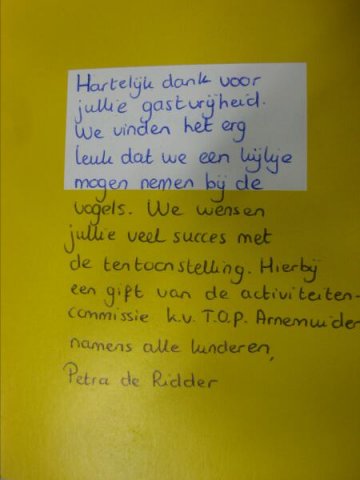 Hartelijk dank voor
jullie gastvrijheid.
We vinden het erg
leuk dat we een kijkje
mogen nemen bij de
vogels. We wensen
jullie veel succes met
de tentoonstelling. Hierbij
een gift van de activiteiten-
commissie k.v. T.O.P. Arnemuiden
namens alle kinderen,
Petra de Ridder